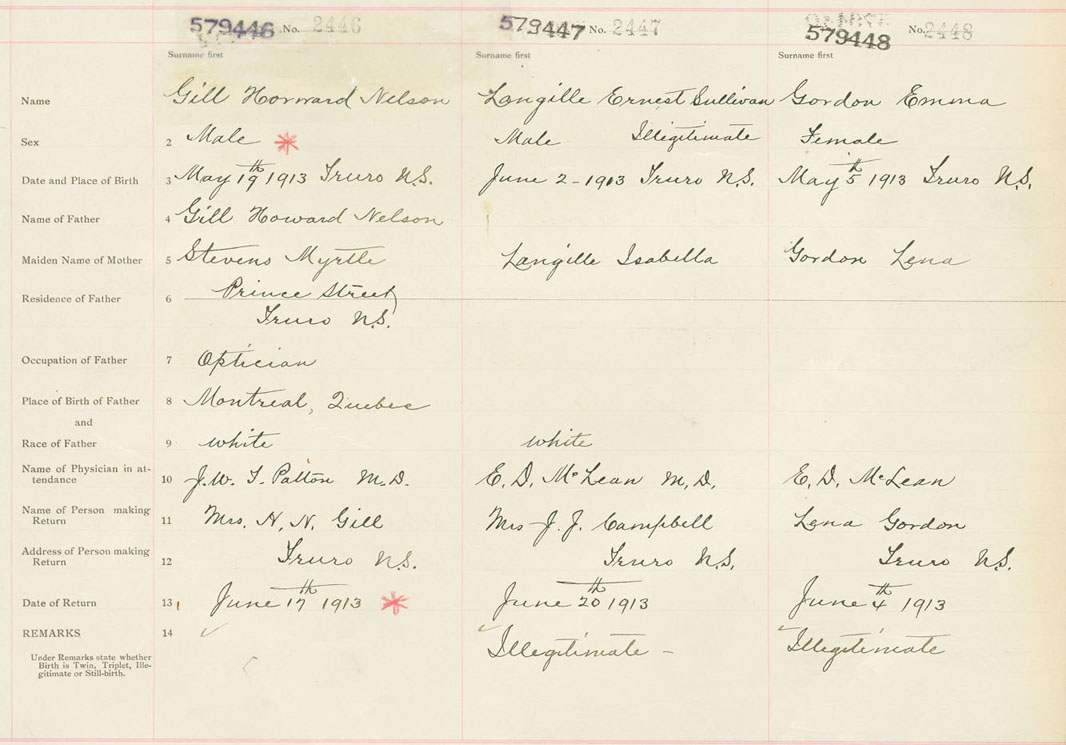 579446 No. 2446 579447 No. 2447 579448 No. 2448
Surname first Surname first Surname first
Name Gill Horward Nelson Langille Ernest Sullivan Gordon Emma
Sex 2 Male * Male Illegitimate Female
Date and Place of Birth 3 May 19th 1913 Truro N.S. June 2 - 1913 Truro N.S. May 5th 1913 Truro N.S.
Name of Father 4 Gill Howard Nelson
Maiden Name of Mother 5 Stevens Myrtle Langille Isabella Gordon Lena
Residence of Father 6 Prince Street
Truro N.S.
Occupation of Father 7 Optician
Place of Birth of Father 8 Montreal, Quebec
and
Race of Father 9 white white
Name of Physician in at-
tendance 10 J. W. T. Patton M.D. E. D. McLean M.D. E. D. McLean
Name of Person making
Return 11 Mrs. H. N. Gill Mrs J. J. Campbell Lena Gordon
Address of Person making
Return 12 Truro N.S. Truro N.S. Truro N.S.
Date of Return 13 June 17th 1913 * June 20th 1913 June 4th 1913
REMARKS 14 Illegitimate - Illegitimate
Under Remarks state whether
Birth is Twin, Triplet, Ille-
gitimate or Still-birth.